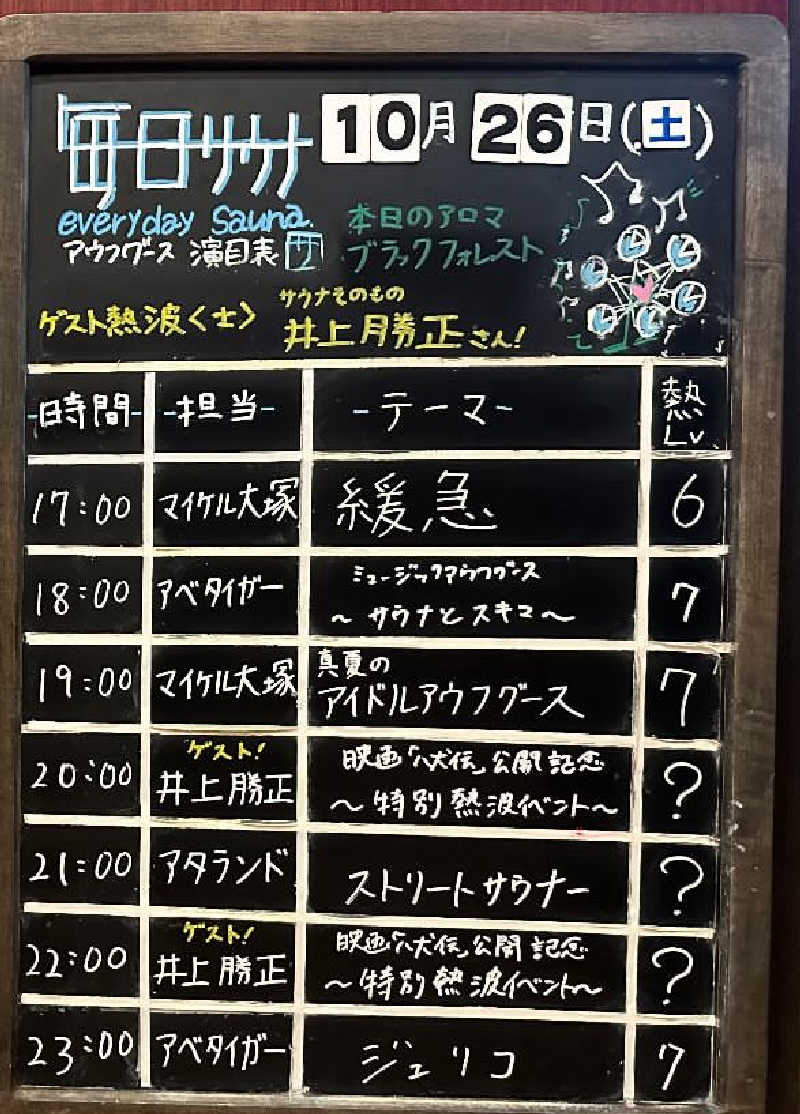 毎日サウナ 10月26日(土)
everyday Sauna.
アウフグース 演目表 サ
本日のアロマ
ブラックフォレスト
ゲスト熱波〈士〉
サウナそのもの
井上勝正さん!
-時間- -担当- -テーマ- 熱Lv
17:00 マイケル大塚 緩急 6
18:00 アベタイガー ミュージックアウフグース 7
~サウナとスキマ~
19:00 マイケル大塚 真夏の 7
アイドルアウフグース
20:00 ゲスト! 映画「八犬伝」公開記念 ?
井上勝正 ~特別熱波イベント~
21:00 アタランド ストリートサウナー ?
22:00 ゲスト! 映画「八犬伝」公開記念 ?
井上勝正 ~特別熱波イベント~
23:00 アベタイガー ジェリコ 7